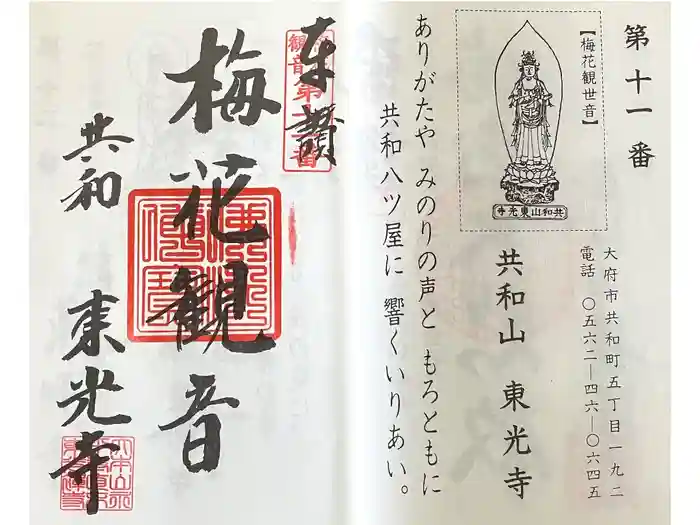 第十一番
【梅花観世音】
共和山東光寺
大府市共和町五丁目一九二
電話 〇五六二―四六―〇六四五
共和山 東光寺
ありがたや みのりの声と もろともに
共和八ツ屋に 響くいりあい。
奉讃
梅花観音
共和 東光寺